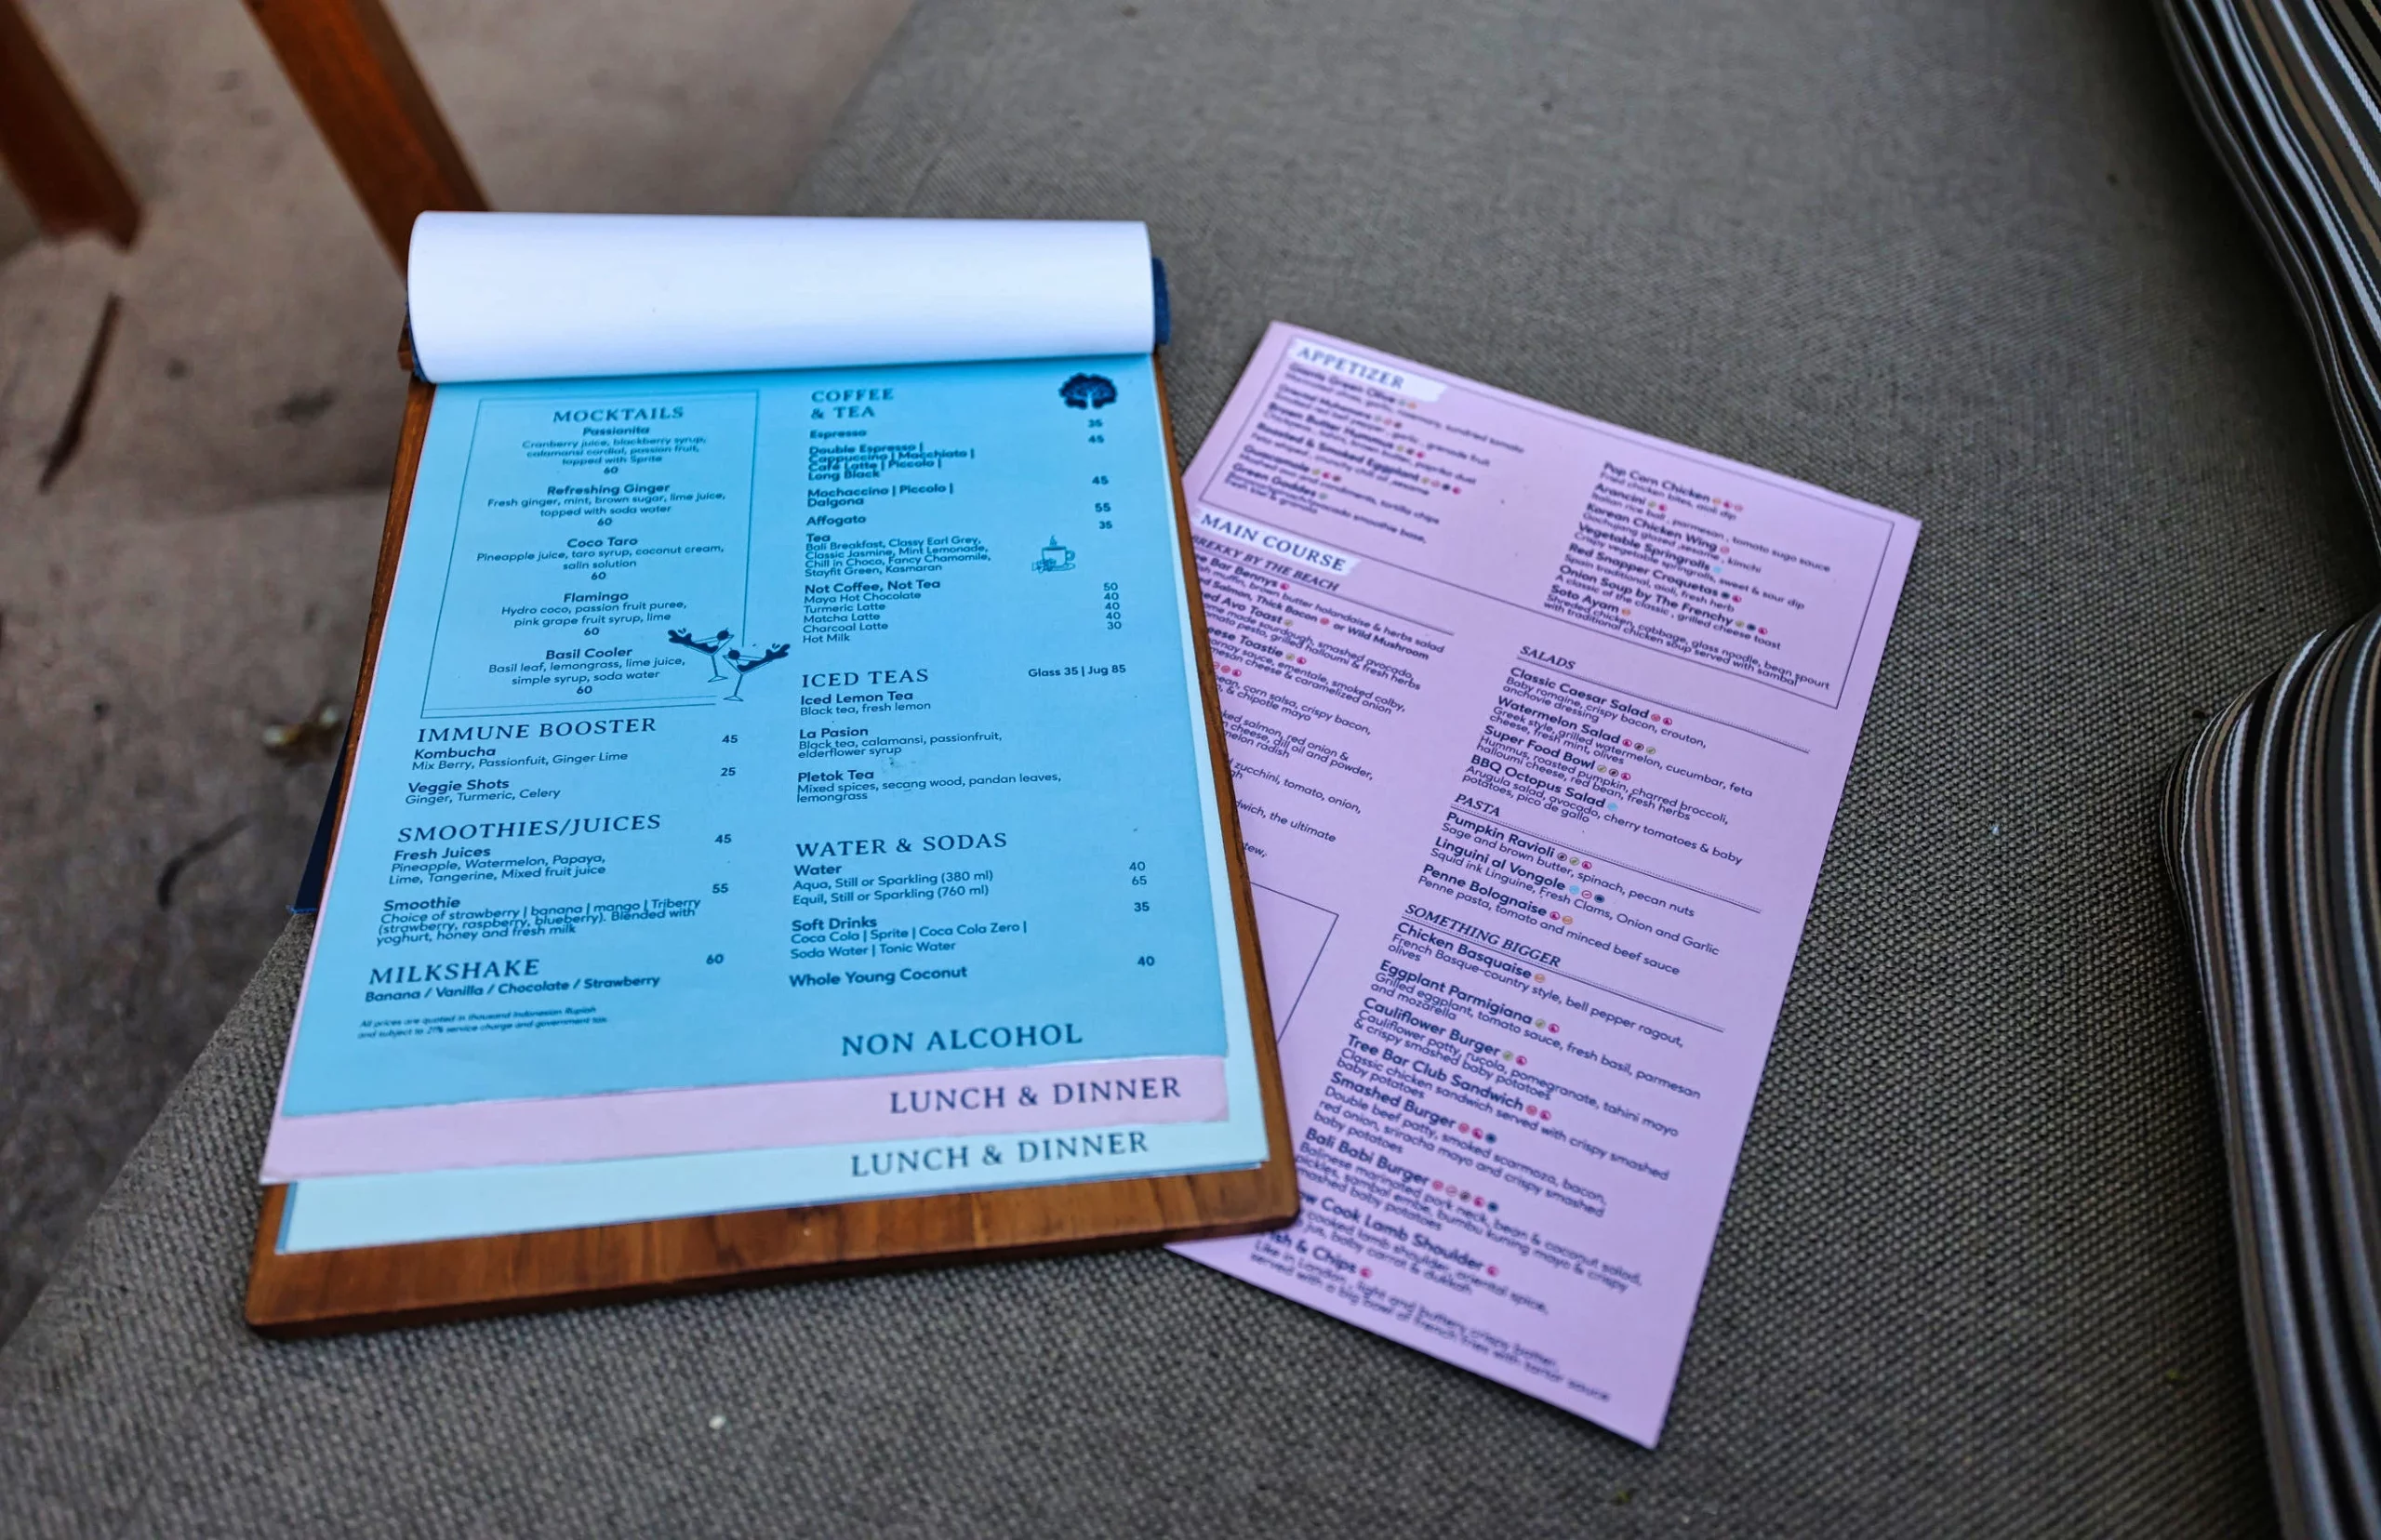 MOCKTAILS
Passionita
Cranberry juice, blackberry syrup,
calamansi cordial, passion fruit,
topped with Sprite
60
Refreshing Ginger
Fresh ginger, mint, brown sugar, lime juice,
topped with soda water
60
Coco Taro
Pineapple juice, taro syrup, coconut cream,
salin solution
60
Flamingo
Hydro coco, passion fruit puree,
pink grape fruit syrup, lime
60
Basil Cooler
Basil leaf, lemongrass, lime juice,
simple syrup, soda water
60
IMMUNE BOOSTER
Kombucha 45
Mix Berry, Passionfuit, Ginger Lime
Veggie Shots 25
Ginger, Turmeric, Celery
SMOOTHIES/JUICES
Fresh Juices 45
Pineapple, Watermelon, Papaya,
Lime, Tangerine, Mixed fruit juice
Smoothie 55
Choice of strawberry | banana | mango | Triberry
(strawberry, raspberry, blueberry). Blended with
yoghurt, honey and fresh milk
MILKSHAKE 60
Banana / Vanilla / Chocolate / Strawberry
All prices are quoted in thousand Indonesian Rupiah
and subject to 21% service charge and government tax.
COFFEE
& TEA
Espresso 35
Double Espresso | 45
Cappuccino | Macchiato |
Café Latte | Piccolo |
Long Black
Mochaccino | Piccolo | 45
Dalgona
Affogato 55
Tea 35
Bali Breakfast, Classy Earl Grey,
Classic Jasmine, Mint Lemonade,
Chill in Choco, Fancy Chamomile,
Stayfit Green, Kasmaran
Not Coffee, Not Tea
Maya Hot Chocolate 50
Turmeric Latte 40
Matcha Latte 40
Charcoal Latte 40
Hot Milk 30
ICED TEAS Glass 35 | Jug 85
Iced Lemon Tea
Black tea, fresh lemon
La Pasion
Black tea, calamansi, passionfruit,
elderflower syrup
Pletok Tea
Mixed spices, secang wood, pandan leaves,
lemongrass
WATER & SODAS
Water
Aqua, Still or Sparkling (380 ml) 40
Equil, Still or Sparkling (760 ml) 65
Soft Drinks 35
Coca Cola | Sprite | Coca Cola Zero |
Soda Water | Tonic Water
Whole Young Coconut 40
NON ALCOHOL
LUNCH & DINNER
LUNCH & DINNER
APPETIZER
Green Olive
Brown Butter Hummus
Roasted & Smoked Eggplant
Guacamole
Green Goddes
Pop Corn Chicken
Fried chicken bites, aioli dip
Arancini
Italian rice ball, parmesan, tomato sugo sauce
Korean Chicken Wing
Gochujang glazed, sesame, kimchi
Vegetable Springrolls
Crispy vegetable springrolls, sweet & sour dip
Red Snapper Croquetas
Spain traditional, aioli, fresh herb
Onion Soup by The Frenchy
A classic of the classic, grilled cheese toast
Soto Ayam
Shreded chicken, cabbage, glass noodle, bean spourt
with traditional chicken soup served with sambal
MAIN COURSE
BREKKY BY THE BEACH
Bar Bennys
muffin, brown butter holandaise & herbs salad
Salmon, Thick Bacon or Wild Mushroom
Avo Toast
made sourdough, smashed avocado,
pesto, grilled halloumi & fresh herbs
Toastie
sauce, ementale, smoked colby,
cheese & caramelized onion
corn salsa, crispy bacon,
& chipotle mayo
salmon, red onion &
cheese, dill oil and powder,
radish
zucchini, tomato, onion,
the ultimate
SALADS
Classic Caesar Salad
Baby romaine, crispy bacon, crouton,
anchovie dressing
Watermelon Salad
Greek style, grilled watermelon, cucumbar, feta
cheese, fresh mint, olives
Super Food Bowl
Hummus, roasted pumpkin, charred broccoli,
halloumi cheese, red bean, fresh herbs
BBQ Octopus Salad
Arugula salad, avocado, cherry tomatoes & baby
potatoes, pico de gallo
PASTA
Pumpkin Ravioli
Sage and brown butter, spinach, pecan nuts
Linguini al Vongole
Squid ink Linguine, Fresh Clams, Onion and Garlic
Penne Bolognaise
Penne pasta, tomato and minced beef sauce
SOMETHING BIGGER
Chicken Basquaise
French Basque-country style, bell pepper ragout,
olives
Eggplant Parmigiana
Grilled eggplant, tomato sauce, fresh basil, parmesan
and mozarella
Cauliflower Burger
Cauliflower patty, rucola, pomegranate, tahini mayo
& crispy smashed baby potatoes
Tree Bar Club Sandwich
Classic chicken sandwich served with crispy smashed
baby potatoes
Smashed Burger
Double beef patty, smoked scarmoza, bacon,
red onion, sriracha mayo and crispy smashed
baby potatoes
Bali Babi Burger
Balinese marinated pork neck, bean & coconut salad,
pickles, sambal embe, bumbu kuning mayo & crispy
smashed baby potatoes
Cook Lamb Shoulder
cooked lamb shoulder, oriental spice,
jus, baby carrot & dukkah
Fish & Chips
Like in London, light and buttery crispy batter,
served with a big bowl of french fries with tartar sauce